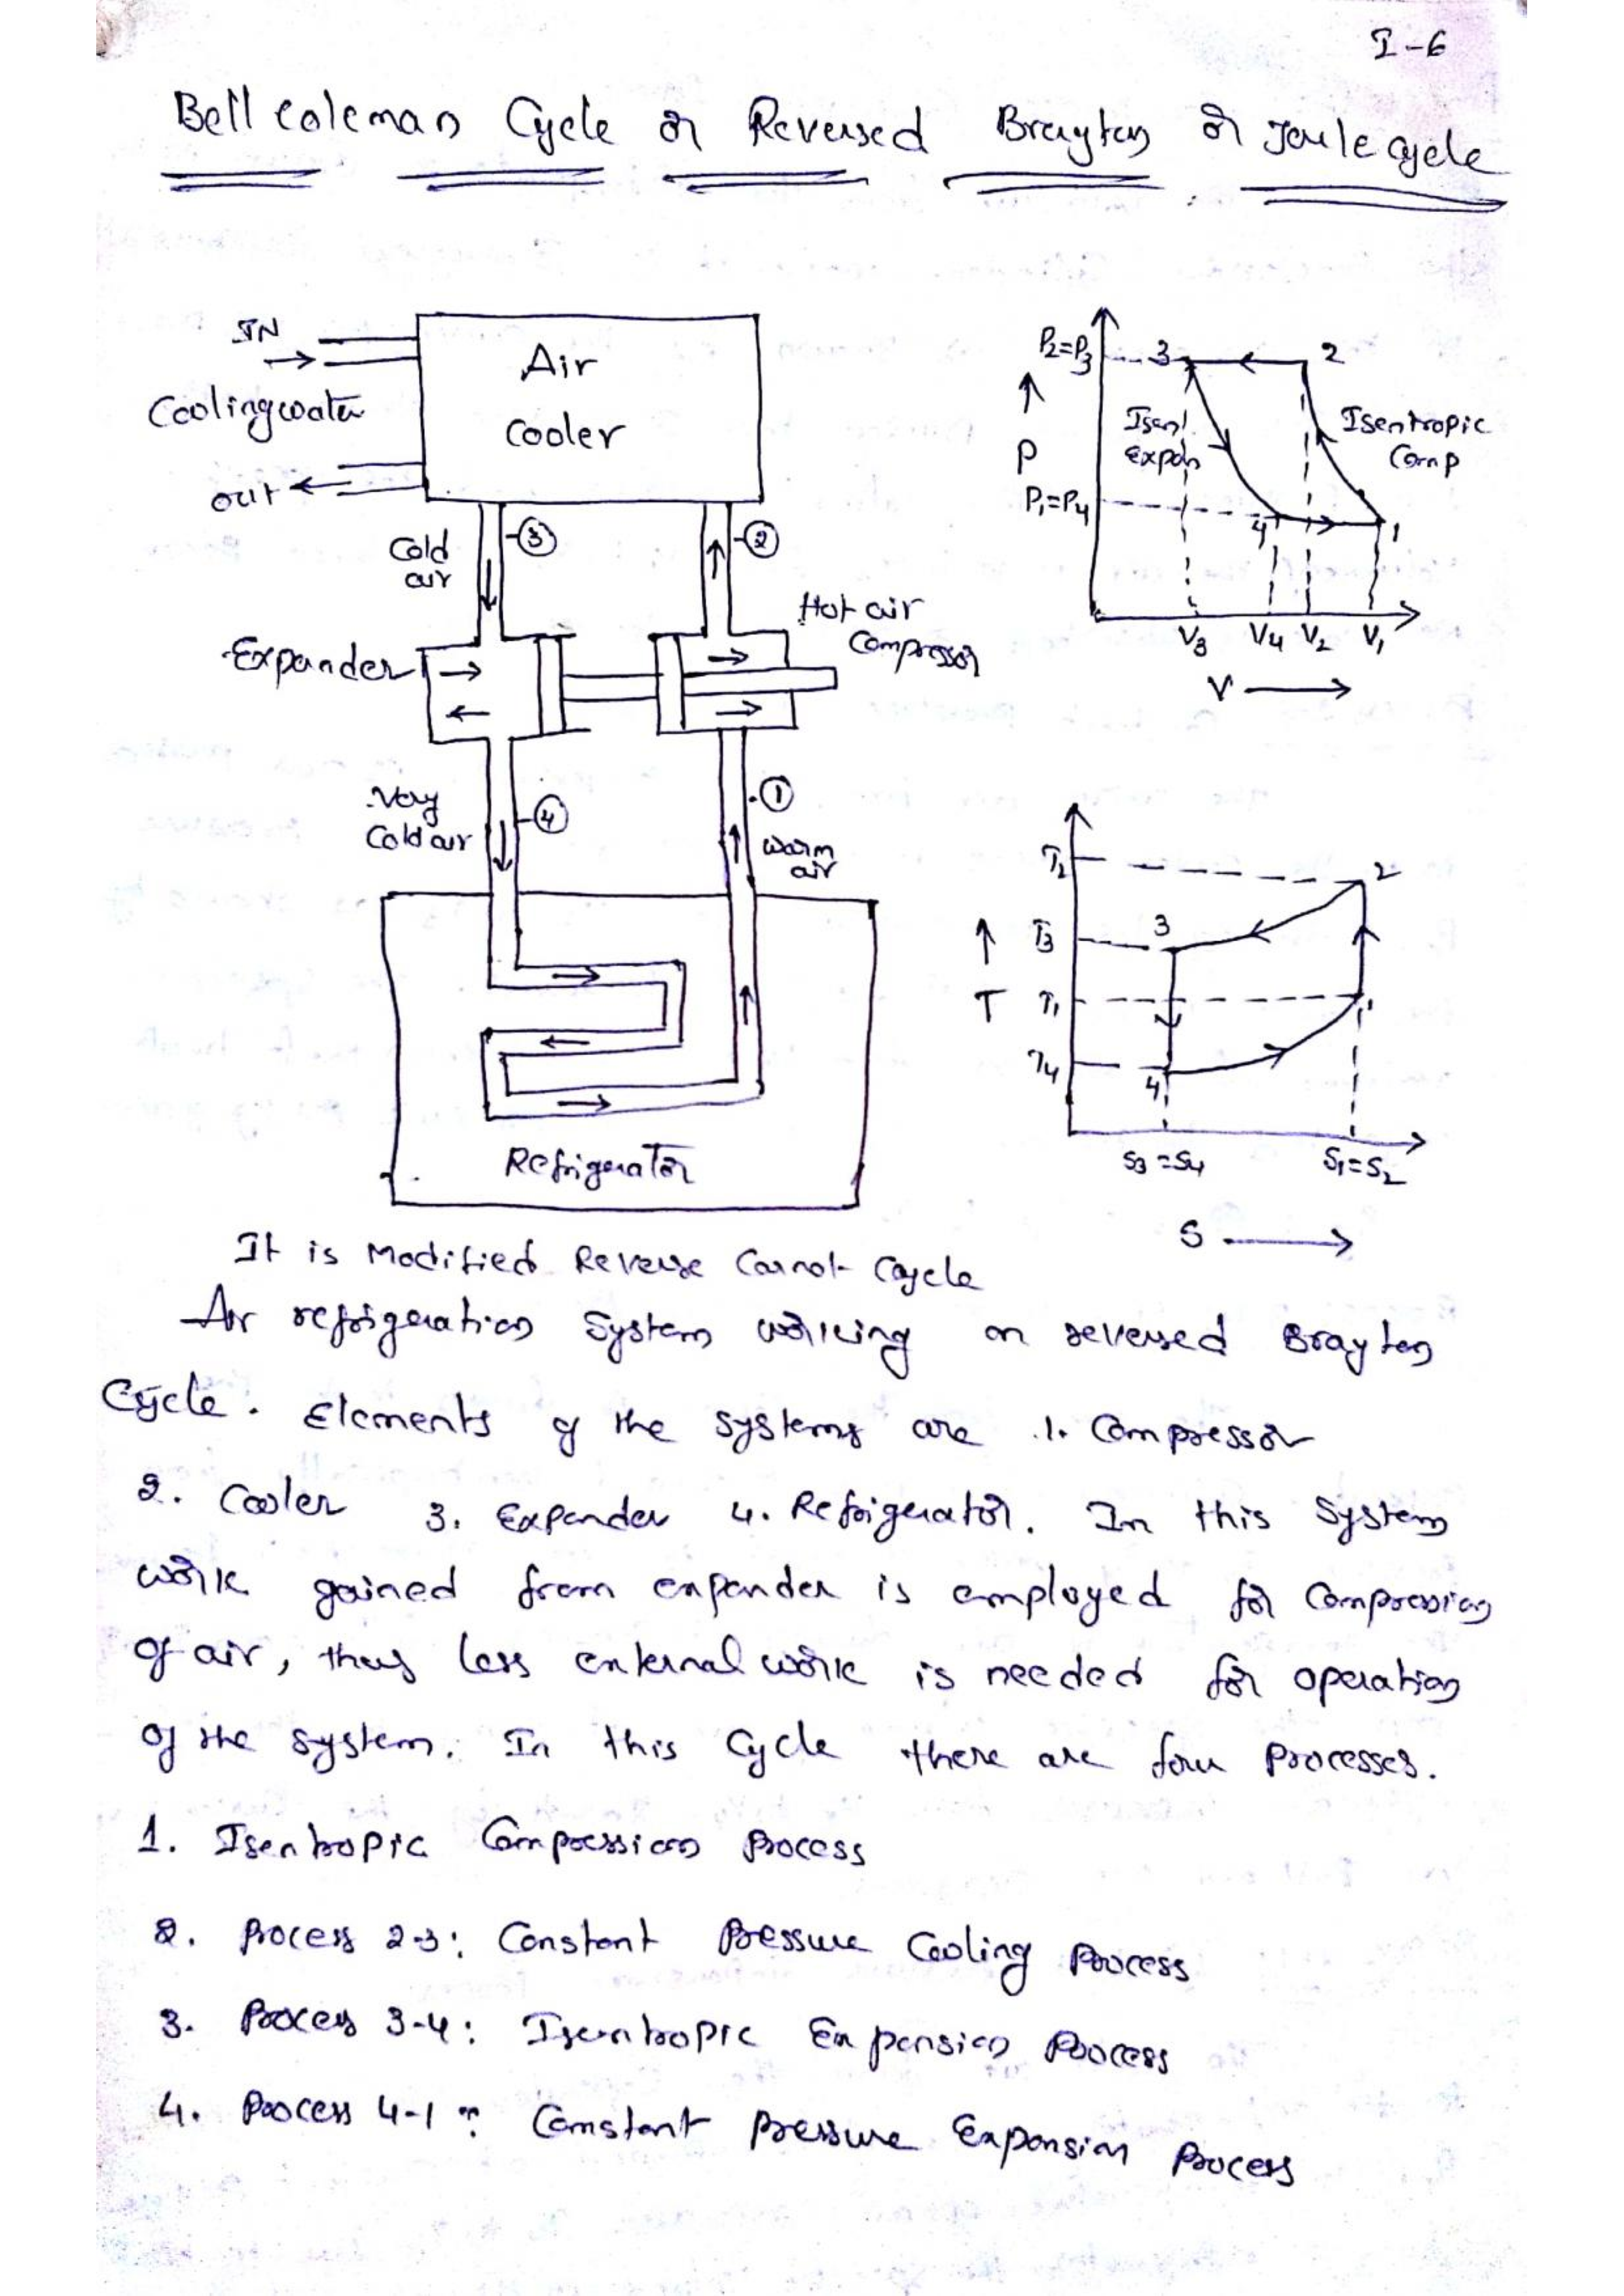 I-6
Bell Coleman Cycle or Reversed Brayton or Joule cycle
IN
Cooling water
out
Air
Cooler
Cold
air
3
2
Expander
Hot air
Compressor
Very
Cold air
4
1
warm
air
Refrigerator
P2=P3
P
P1=P4
3
2
Isent.
Expan
Isentropic
Comp
4
1
V3 V4 V2 V1
V
T2
T3
T
T1
T4
3
2
1
4
S3=S4
S1=S2
S
It is Modified Reverse Carnot Cycle
Air refrigeration System working on reversed Brayton
Cycle. Elements of the systems are 1. Compressor
2. Cooler 3. Expander 4. Refrigerator. In this System
work gained from expander is employed for Compression
of air, thus less external work is needed for operation
of the system. In this Cycle there are four Processes.
1. Isentropic Compression Process
2. Process 2-3: Constant Pressure Cooling Process
3. Process 3-4: Isentropic Expansion Process
4. Process 4-1: Constant pressure Expansion Process